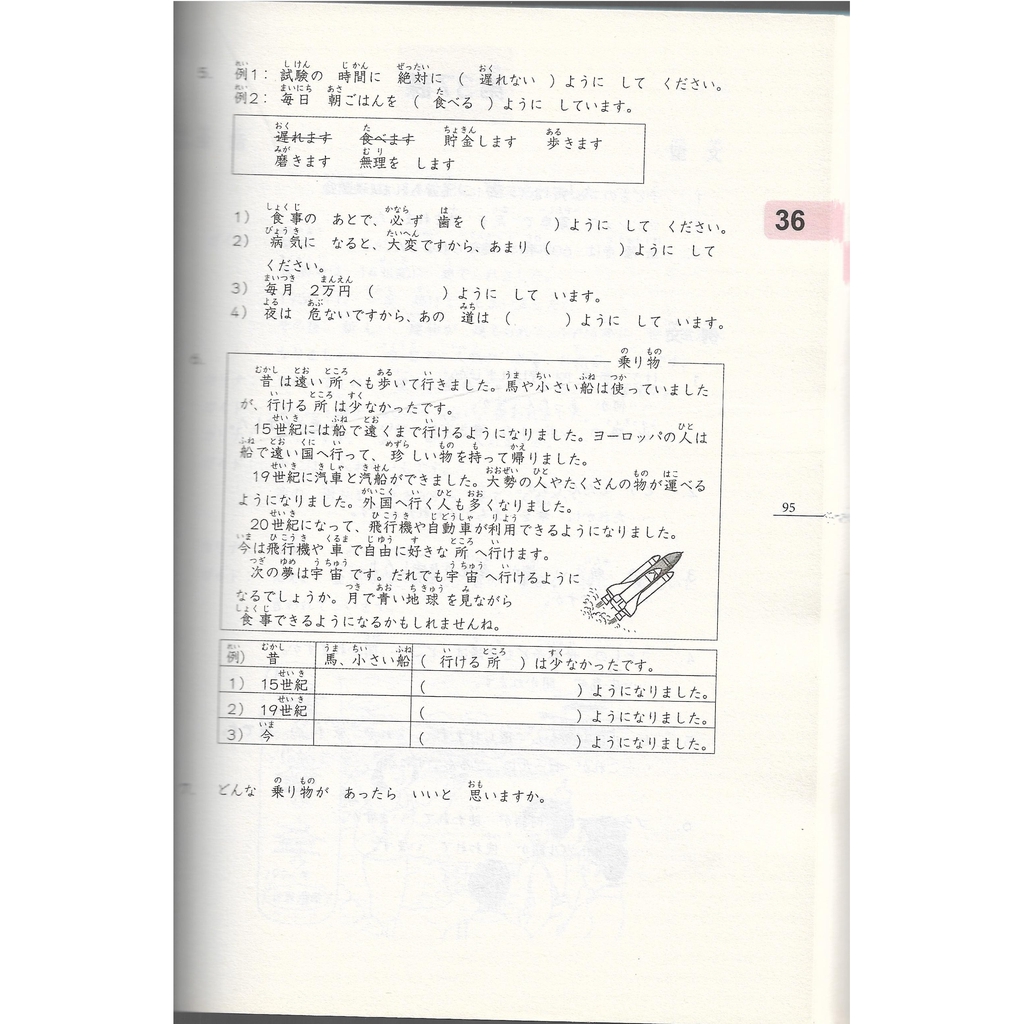 5. 例1： 試験の 時間に 絶対に （ 遅れない ）ように して ください。
例2： 毎日 朝ごはんを （ 食べる ）ように しています。
遅れます 食べます 貯金します 歩きます
磨きます 無理を します
1） 食事の あとで、必ず 歯を （ ）ように して ください。
2） 病気に なると、大変ですから、あまり （ ）ように して
ください。
3） 毎月 2万円 （ ）ように して います。
4） 夜は 危ないですから、あの 道は （ ）ように して います。
36
6.
乗り物
昔は遠い所へも歩いて行きました。馬や小さい船は使っていました
が、行ける所は少なかったです。
15世紀には船で遠くまで行けるようになりました。ヨーロッパの人は
船で遠い国へ行って、珍しい物を持って帰りました。
19世紀に汽車と汽船ができました。大勢の人やたくさんの物が運べる
ようになりました。外国へ行く人も多くなりました。
20世紀になって、飛行機や自動車が利用できるようになりました。
今は飛行機や車で自由に好きな所へ行けます。
次の夢は宇宙です。だれでも宇宙へ行けるように
なるでしょうか。月で青い地球を見ながら
食事できるようになるかもしれませんね。
95
例） 昔 馬、小さい船 （ 行ける所 ）は少なかったです。
1） 15世紀 （ ）ようになりました。
2） 19世紀 （ ）ようになりました。
3） 今 （ ）ようになりました。
7. どんな 乗り物が あったら いいと 思いますか。